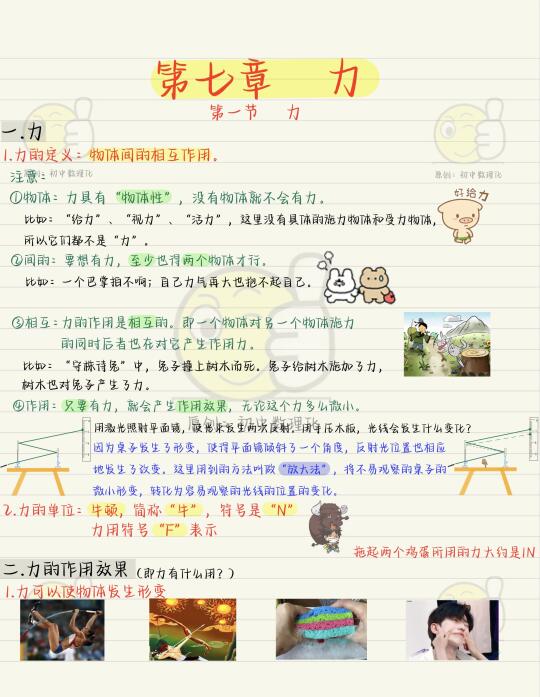 第七章 力
第一节 力
一.力
1.力的定义：物体间的相互作用。
注意：
原创：初中数理化
原创：初中数理化
①物体：力具有“物体性”，没有物体就不会有力。
好给力
比如：“给力”、“视力”、“活力”，这里没有具体的施力物体和受力物体，
所以它们都不是“力”。
②间的：要想有力，至少也得两个物体才行。
比如：一个巴掌拍不响；自己力气再大也抱不起自己。
③相互：力的作用是相互的。即一个物体对另一个物体施力
的同时后者也在对它产生作用力。
比如：“守株待兔”中，兔子撞上树木而死。兔子给树木施加了力，
树木也对兔子产生了力。
④作用：只要有力，就会产生作用效果，无论这个力多么微小。
原创：初中数理化
用激光照射平面镜，使光束发生两次反射。用手压木板，光线会发生什么变化？
因为桌子发生了形变，使得平面镜倾斜了一个角度，反射光位置也相应
地发生了改变。这里用到的方法叫做“放大法”，将不易观察的桌子的
微小形变，转化为容易观察的光线的位置的变化。
2.力的单位：牛顿，简称“牛”，符号是“N”
力用符号“F”表示
拖起两个鸡蛋所用的力大约是1N
二.力的作用效果（即力有什么用？）
1.力可以使物体发生形变